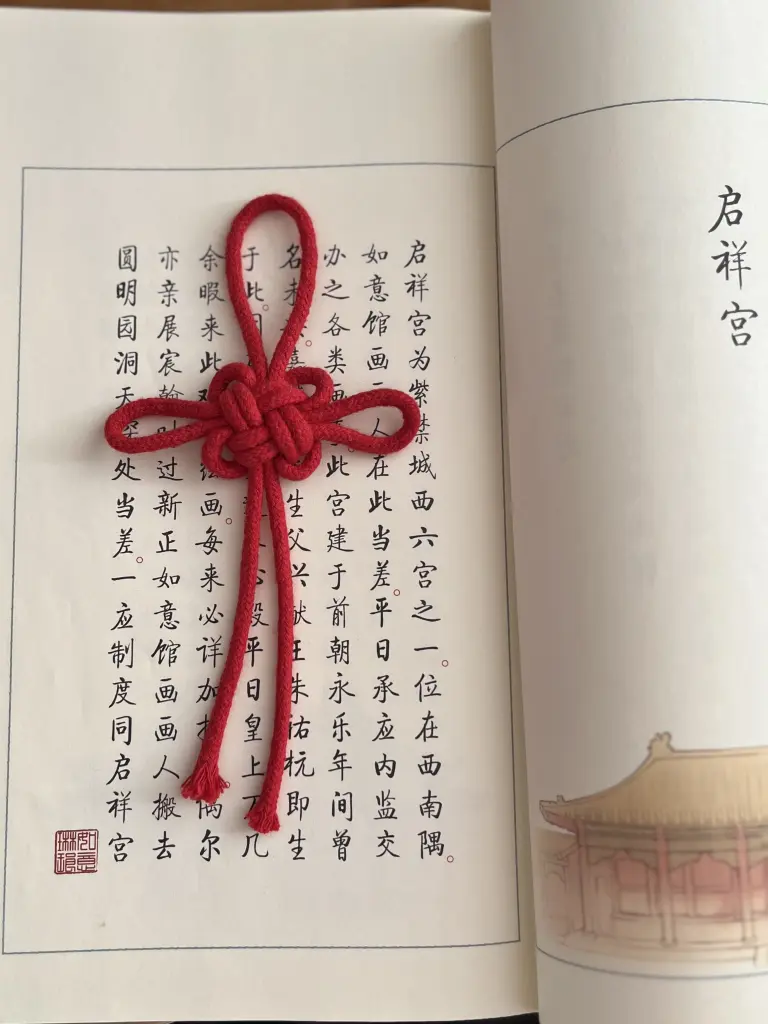 启祥宫
启祥宫为紫禁城西六宫之一。位在西南隅。
如意馆画人在此当差。平日承应内监交
办之各类画此宫建于前朝永乐年间曾
名未生父兴献王朱祐杬即生
于此。殿平日皇上万几
余暇来此绘画。每来必详加偶尔
亦亲展宸翰时过新正如意馆画画人搬去
圆明园洞天深处当差。一应制度同启祥宫
如意
琳琅